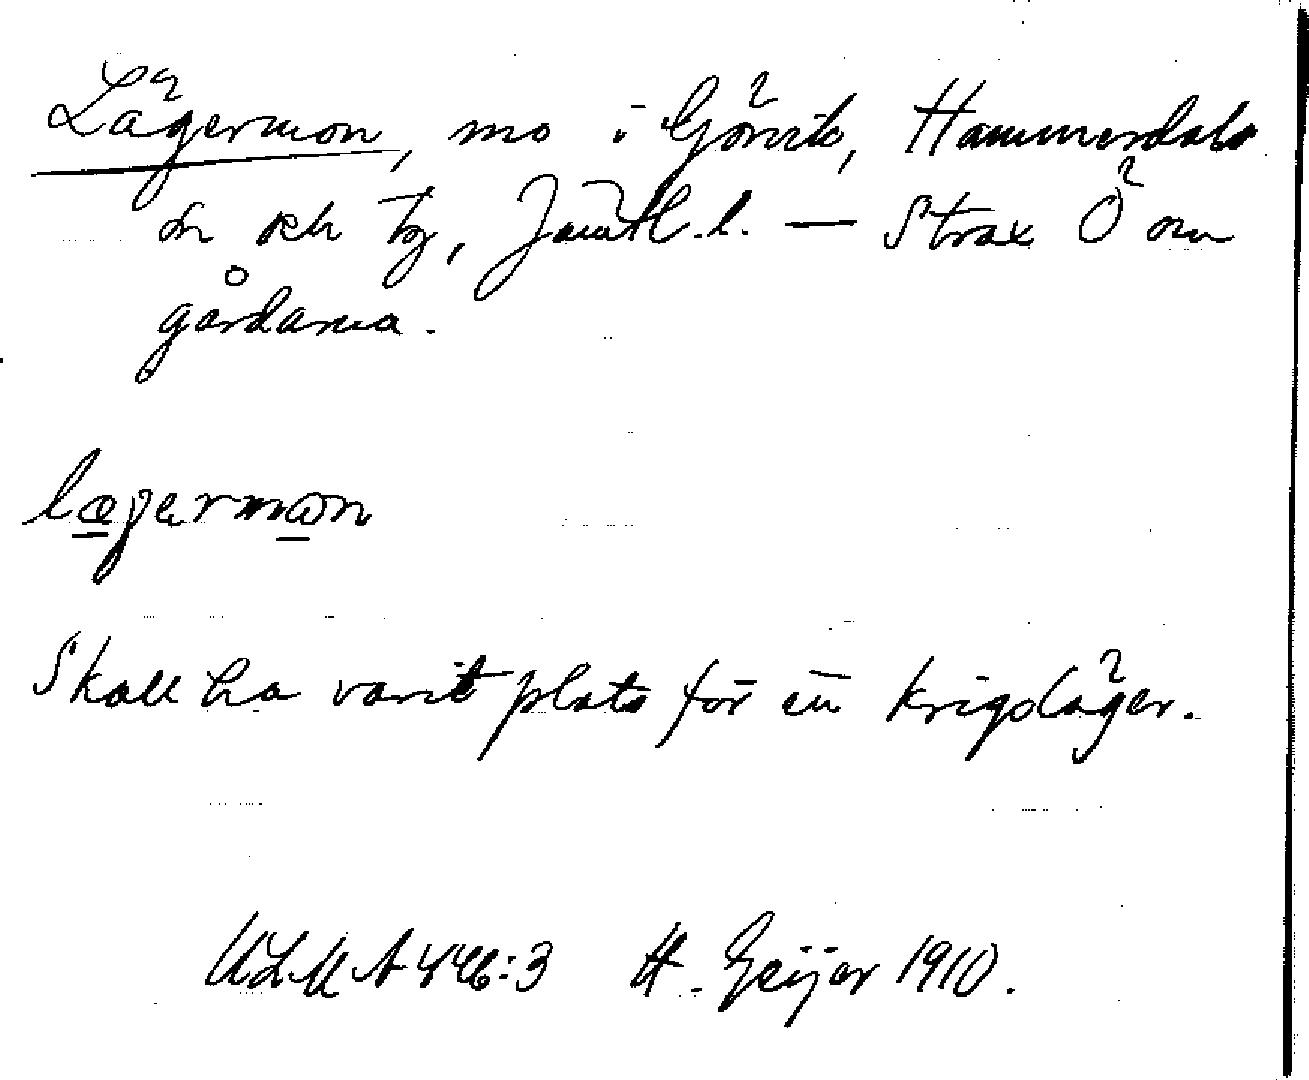 Lägermon, mo i Görvik, Hammerdals
sn och tg, Jämtl. l. — Strax Ö om
gårdarna.
lægermon
Skall ha varit plats för en krigsläger.
ULMA 446:3 H. Geijer 1910.